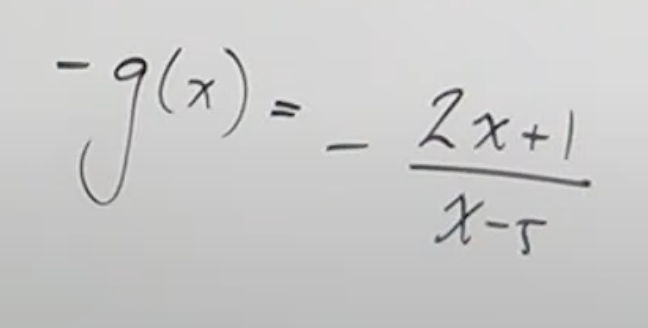 -g(x) = - \frac{2x+1}{x-5}